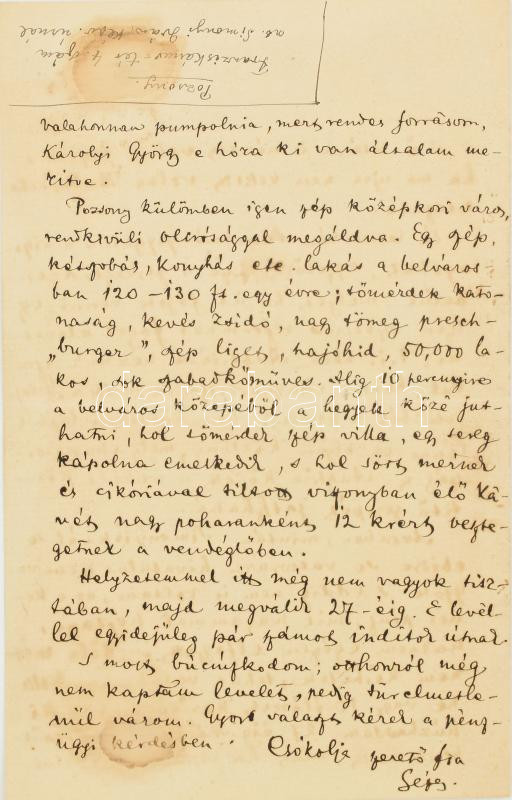 Pozsony.
Franziskánus-tér 4. szám
ab. Simonyi Iván kőv. úrnál
valahonnan pumpolnia, mert rendes forrásom,
Károlyi György e hóra ki van általam me-
rítve.
Pozsony külömben igen szép középkori város,
rendkivüli olcsósággal megáldva. Egy szép,
kétszobás, konyhás etc. lakás a belváros-
ban 120-130 ft. egy évre; tömérdek kato-
naság, kevés zsidó, nagy tömeg presch-
„burger”, szép liget, hajóhid, 50,000 la-
kos, sok szabadkőműves. Alig 10 percnyire
a belváros közepéből a hegyek közé jut-
hatni, hol tömérdek szép villa, egy sereg
kápolna emelkedik, s hol sört mérnek
és cikóriával tiltott viszonyban élő ká-
vét nagy poharanként 12 krért veszte-
getnek a vendéglőben.
Helyzetemmel itt még nem vagyok tisz-
tában, majd megválik 27-éig. E levél-
lel egyidejüleg pár számot inditok útnak.
S most búcsúzkodom; otthonról még
nem kaptam levelet, pedig türelmetle-
nül várom. Gyors választ kérek a pénz-
ügyi kérdésben.
Csókolja szerető fia
Géza.
darabanth